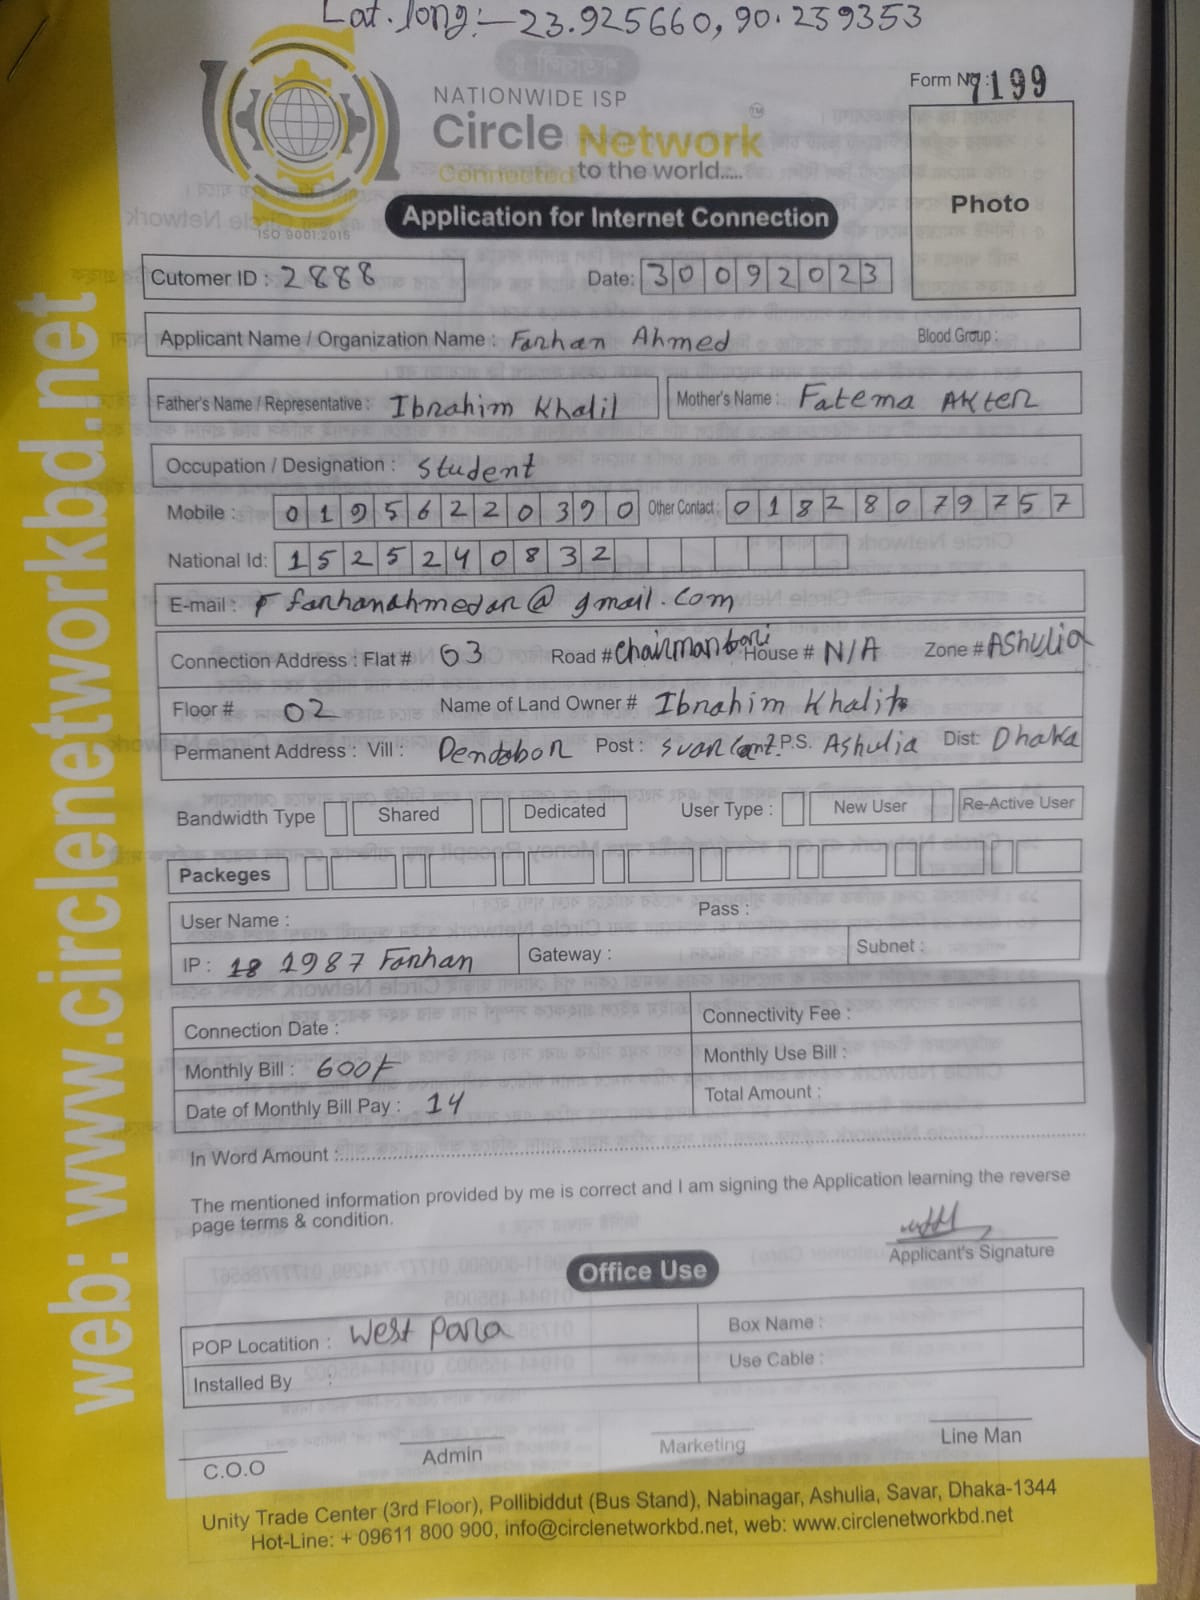 Lat. long:- 23.925660, 90.259353
Form No: 7199
NATIONWIDE ISP
Circle Network TM
Connected to the world.....
ISO 9001:2015
Application for Internet Connection
Photo
Cutomer ID : 2888 Date: 30092023
Applicant Name / Organization Name : Farhan Ahmed Blood Group :
Father's Name / Representative : Ibrahim Khalil Mother's Name : Fatema Akter
Occupation / Designation : Student
Mobile : 01956220390 Other Contact : 01828079757
National Id: 1525240832
E-mail : farhanahmedar@gmail.com
Connection Address : Flat # 03 Road # Chairmanbari House # N/A Zone # Ashulia
Floor # 02 Name of Land Owner # Ibrahim Khalil
Permanent Address : Vill : Dendabor Post : P.S. Ashulia Dist: Dhaka
Bandwidth Type Shared Dedicated User Type : New User Re-Active User
Packeges
User Name : Pass :
IP : 18 1987 Farhan Gateway : Subnet :
Connection Date : Connectivity Fee :
Monthly Bill : 600/- Monthly Use Bill :
Date of Monthly Bill Pay : 14 Total Amount :
In Word Amount :
The mentioned information provided by me is correct and I am signing the Application learning the reverse
page terms & condition.
Applicant's Signature
Office Use
POP Locatition : West para Box Name :
Installed By : Use Cable :
C.O.O Admin Marketing Line Man
Unity Trade Center (3rd Floor), Pollibiddut (Bus Stand), Nabinagar, Ashulia, Savar, Dhaka-1344
Hot-Line: + 09611 800 900, info@circlenetworkbd.net, web: www.circlenetworkbd.net
web: www.circlenetworkbd.net